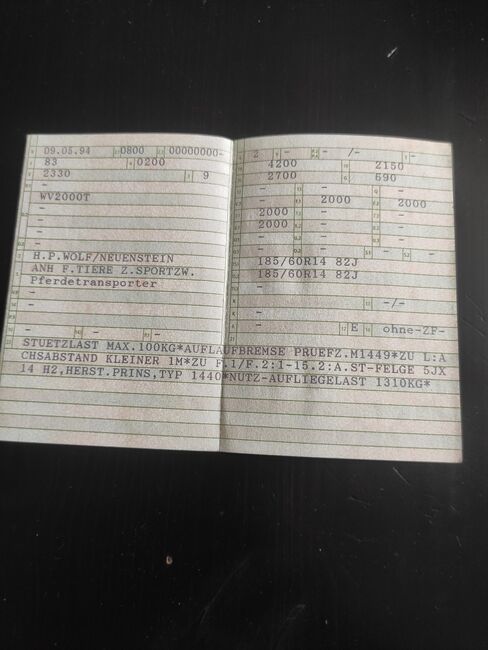 09.05.94 0800 00000000-
83 0200
2330 9
-
WV2000T
-
-
-
H.P.WOLF/NEUENSTEIN
ANH F.TIERE Z.SPORTZW.
Pferdetransporter
-
-
- -
2 - -/- -
4200 2150
2700 690
- - -
- 2000 2000
2000 - -
2000 - -
- - - -
185/60R14 82J
185/60R14 82J
-
- -/-
- E ohne-ZF-
STUETZLAST MAX.100KG*AUFLAUFBREMSE PRUEFZ.M1449*ZU L:A
CHSABSTAND KLEINER 1M*ZU F.1/F.2:1-15.2:A.ST-FELGE 5JX
14 H2,HERST.PRINS,TYP 1440*NUTZ-AUFLIEGELAST 1310KG*